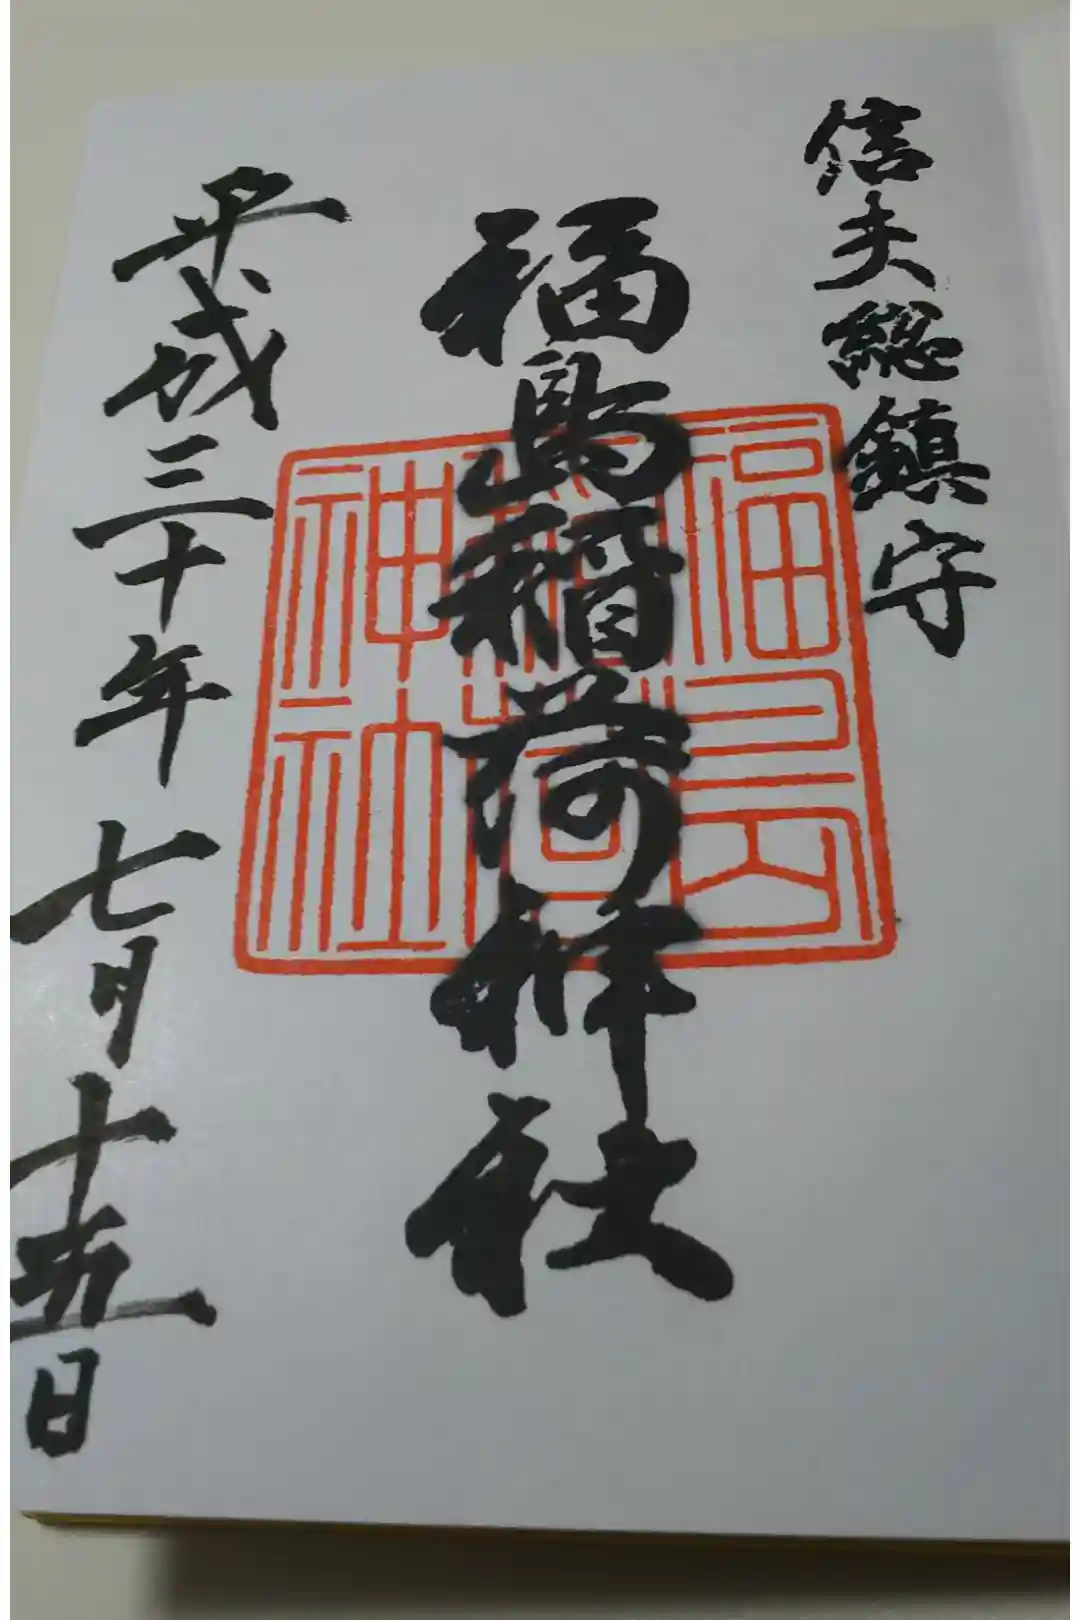 信夫総鎮守
福島稲荷神社
福島稲荷神社
平成三十年七月十五日